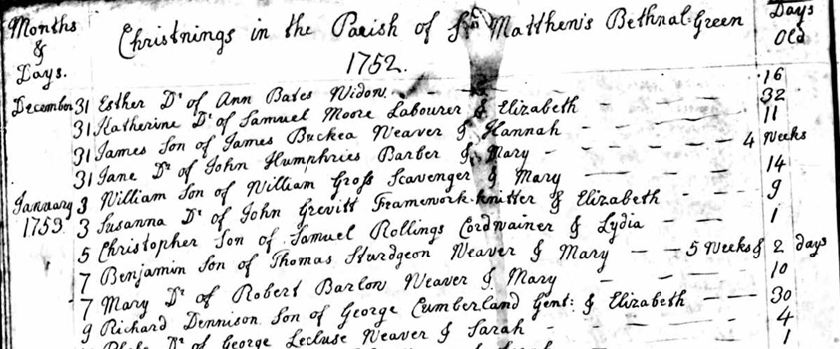 Months & Days.
Christnings in the Parish of St Matthew's Bethnal-Green
1752.
Days Old
December 31 Esther Dr of Ann Bates Widow - - - 16
31 Katherine Dr of Samuel Moore Labourer & Elizabeth - - - 32
31 James Son of James Buckea Weaver & Hannah - - - 11
31 Jane Dr of John Humphries Barber & Mary - - - 4 Weeks
January 1753. 3 William Son of William Gross Scavenger & Mary - - - 14
3 Susanna Dr of John Grevitt Framework-knitter & Elizabeth - - - 9
5 Christopher Son of Samuel Rollings Cordwainer & Lydia - - - 1
7 Benjamin Son of Thomas Sturdgeon Weaver & Mary - - 5 Weeks & 2 days
7 Mary Dr of Robert Barlow Weaver & Mary - - - 10
9 Richard Dennison Son of George Cumberland Gent: & Elizabeth - - - 30
Dr of George Lecluse Weaver & Sarah - - - 4
1